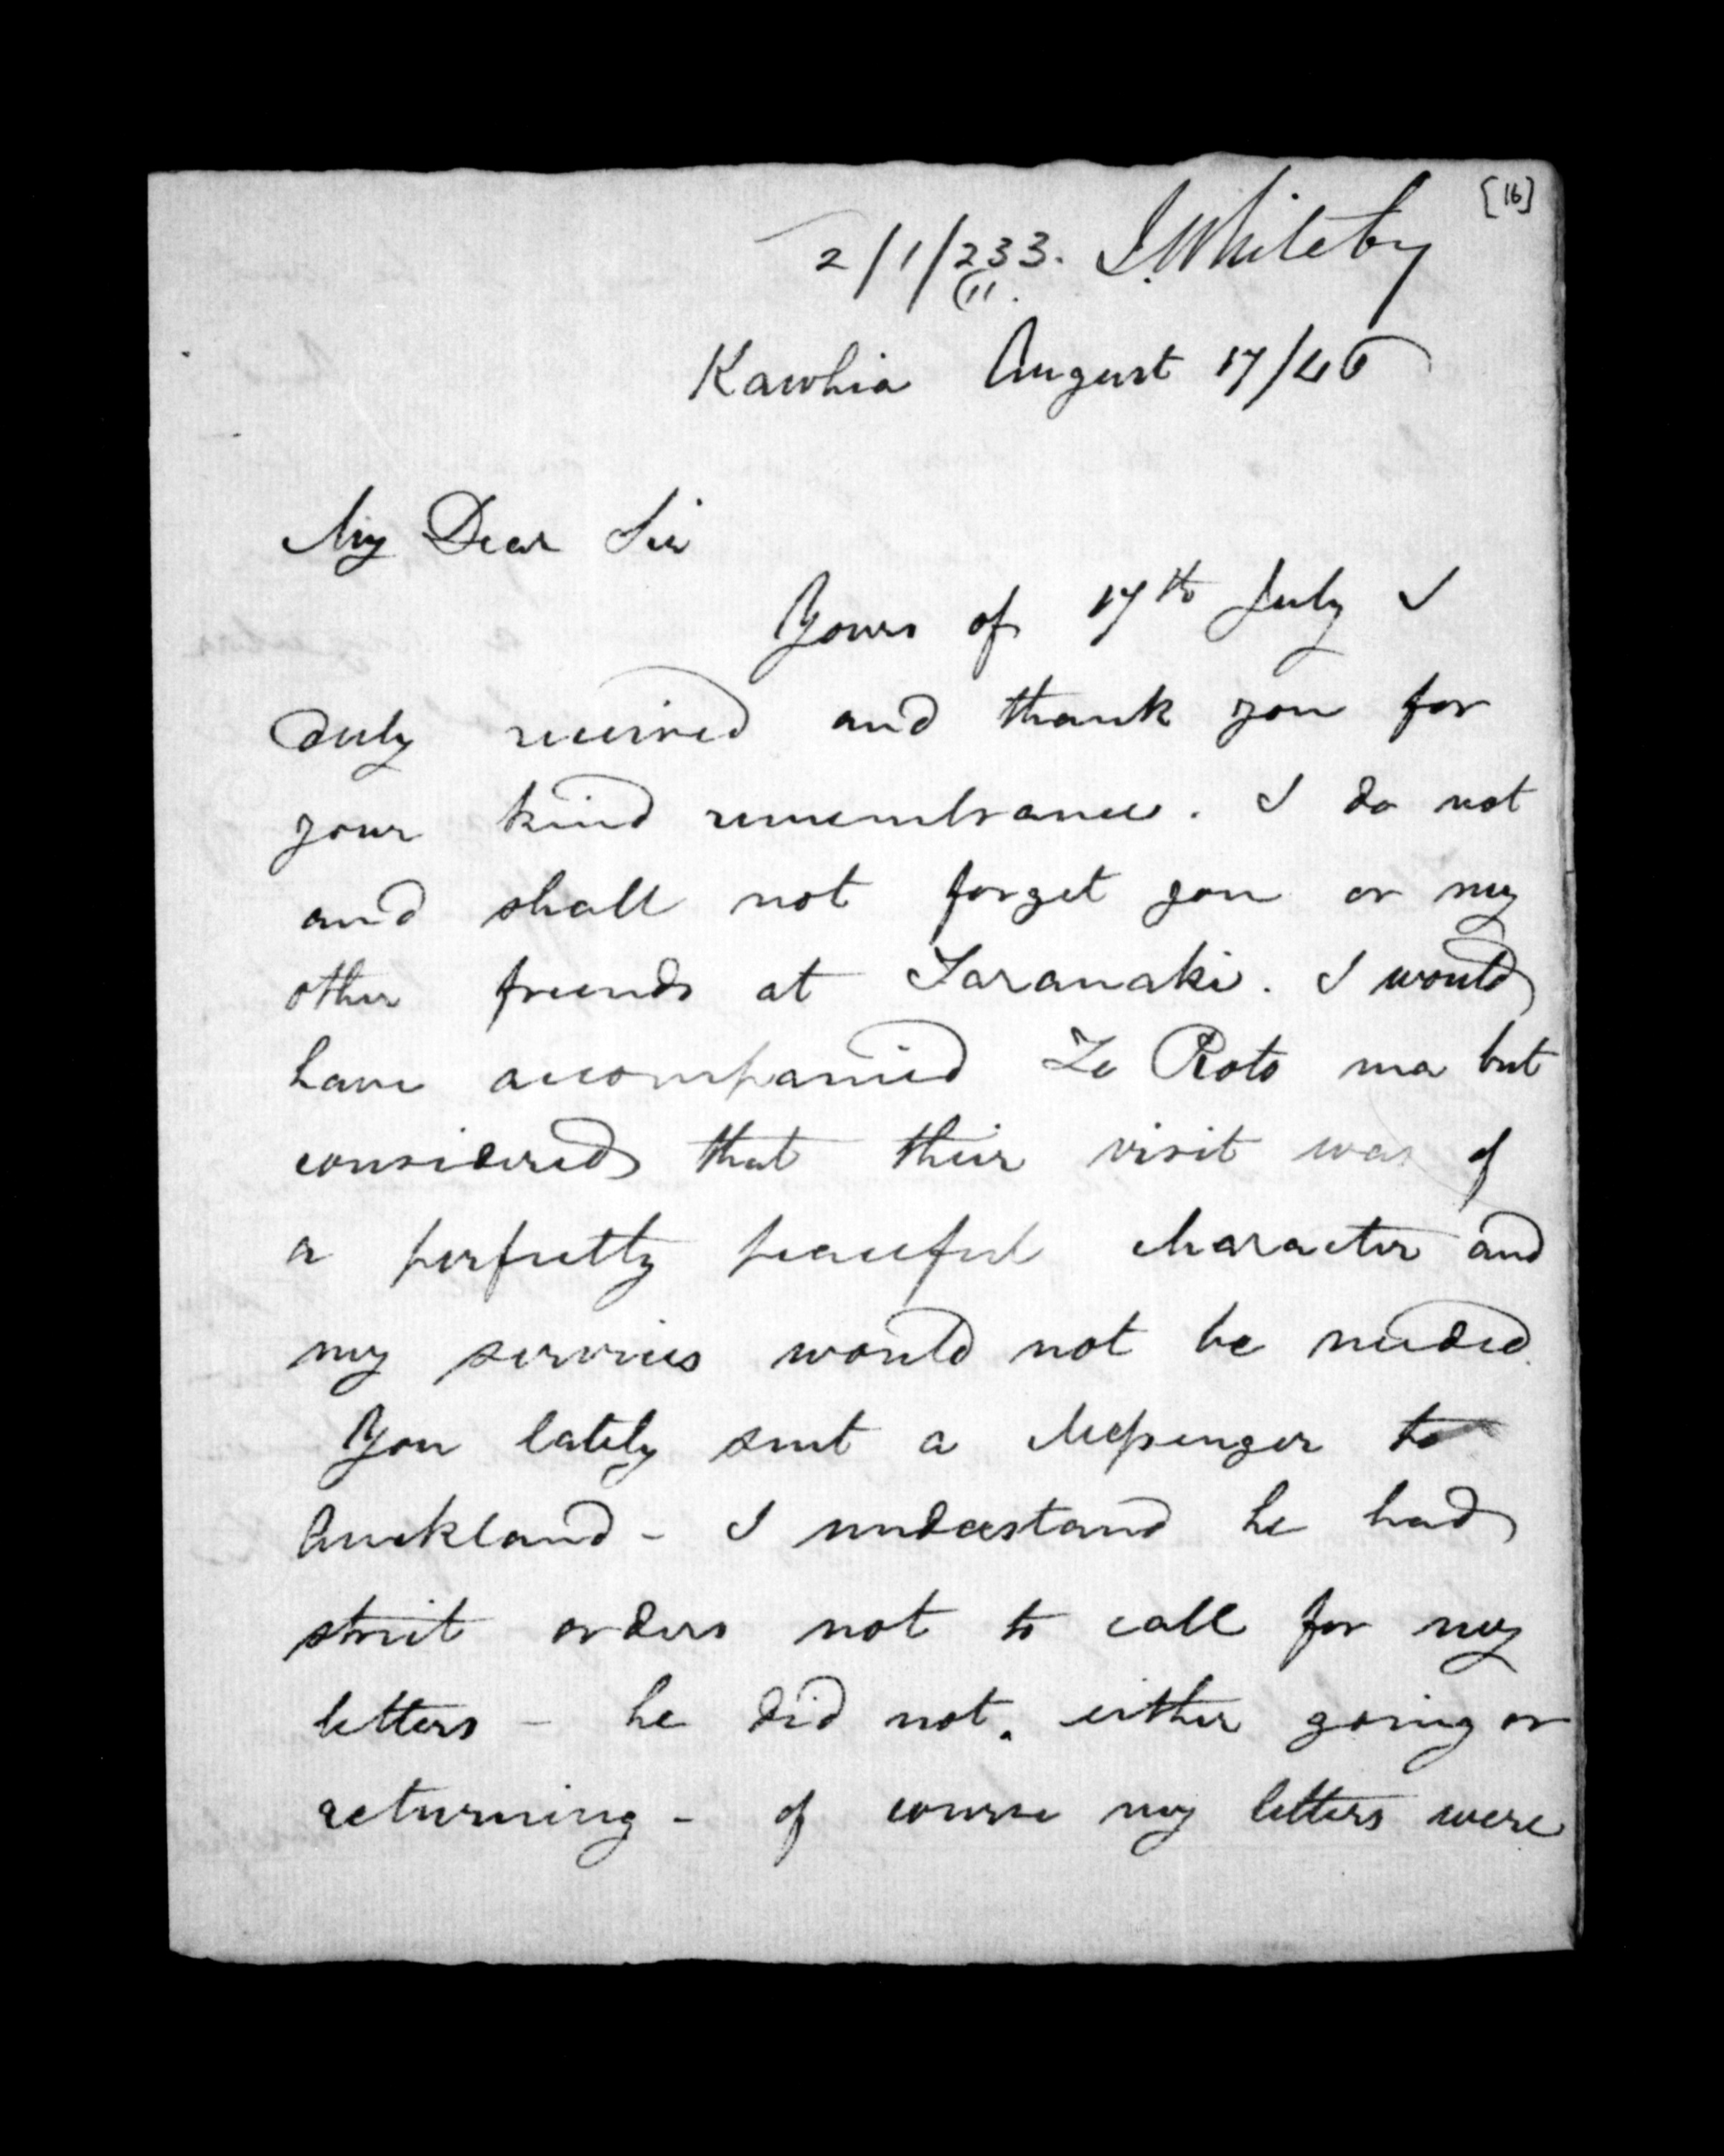 [16]
2/1/233. J. Whiteley
(11.
Kawhia August 17/46
My Dear Sir
Yours of 17th July I
duly received and thank you for
your kind remembrance. I do not
and shall not forget you or my
other friends at Taranaki. I would
have accompanied Te Roto ma but
considered that their visit was of
a perfectly peaceful character and
my services would not be needed.
You lately sent a Messenger to
Auckland - I understand he had
strict orders not to call for my
letters - he did not. either going or
returning - of course my letters were